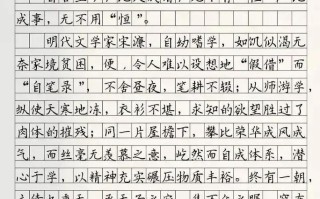 成事，无不用“恒”。
明代文学家宋濂，自幼嗜学，如饥似渴无
奈家境贫困，便，令人难以设想地“假借”而
“自笔录”，不舍昼夜，笔耕不辍；从师游学，
纵使天寒地冻，衣衫不堪，求知的欲望胜过了
肉体的摧残；同一片屋檐下，攀比荣华成风成
气，而丝毫无羡慕之意，屹然而自成体系，潜
心于学，以精神充实碾压物质丰裕。终有一朝，